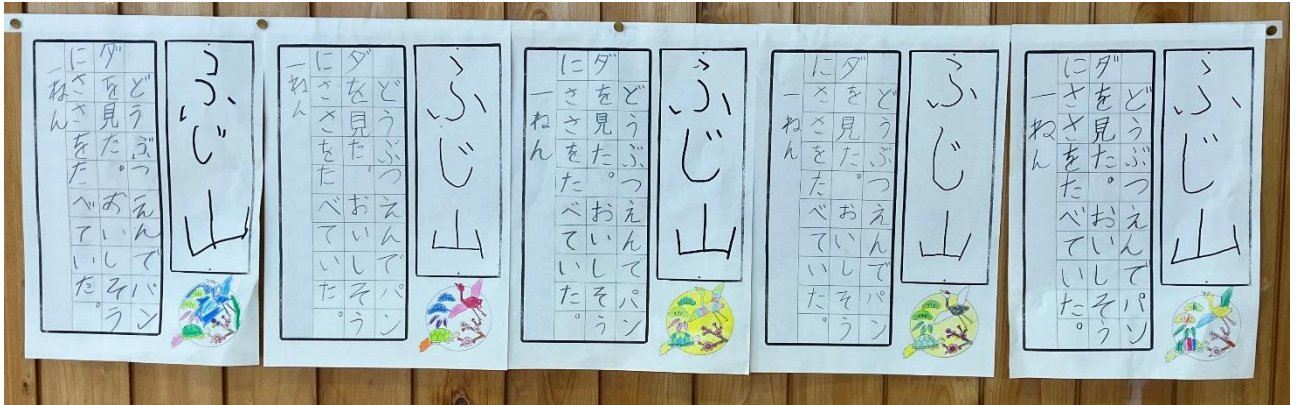 ふじ山
どうぶつえんでパン
ダを見た。おいしそう
にささをたべていた。
一ねん
ふじ山
どうぶつえんでパン
ダを見た。おいしそう
にささをたべていた。
一ねん
ふじ山
どうぶつえんでパン
ダを見た。おいしそう
にささをたべていた。
一ねん
ふじ山
どうぶつえんでパン
ダを見た。おいしそう
にささをたべていた。
一ねん
ふじ山
どうぶつえんでパン
ダを見た。おいしそう
にささをたべていた。
一ねん